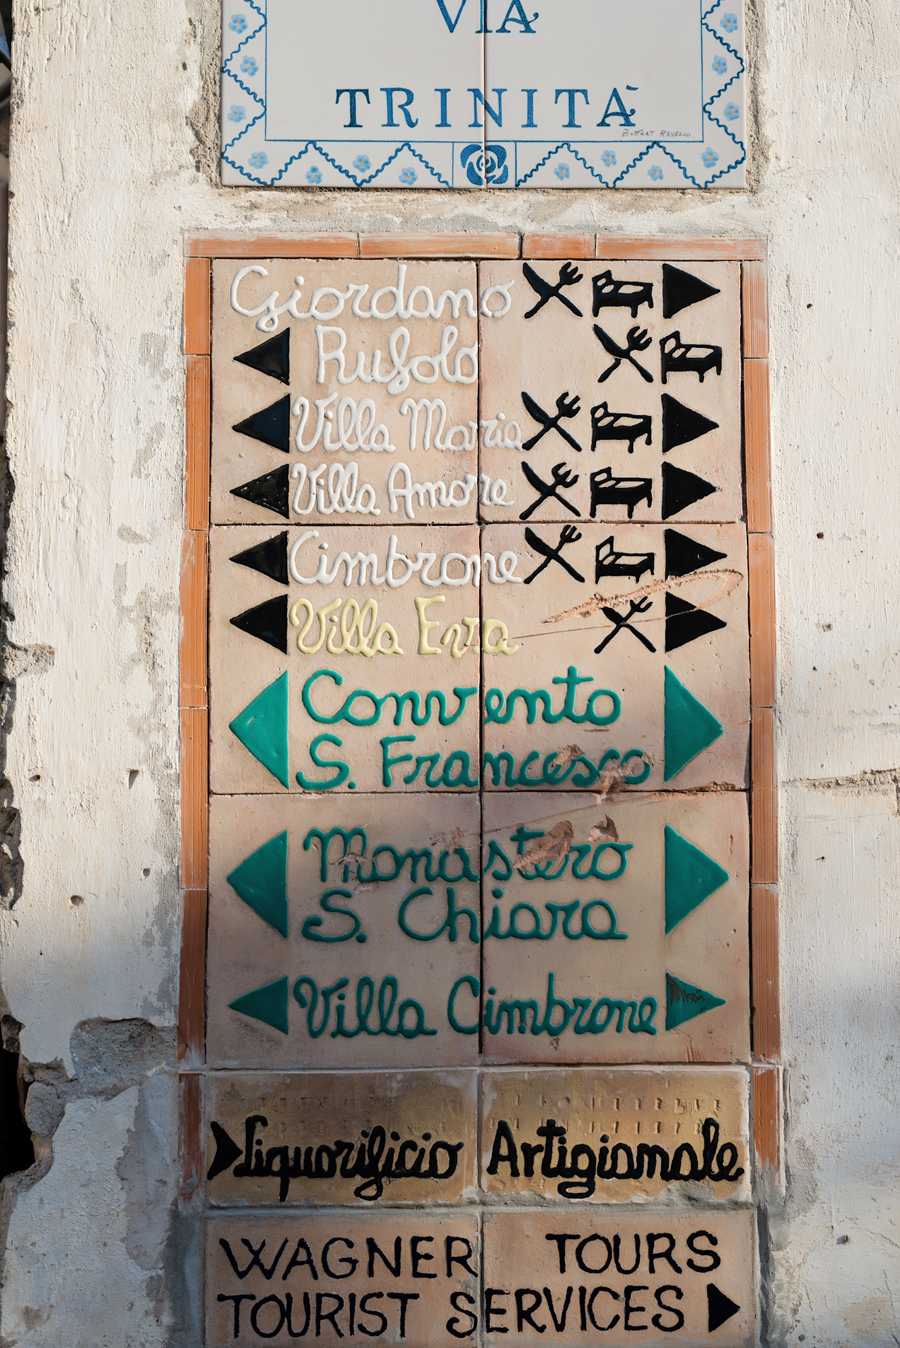 VIA
TRINITÀ
Giordano
Rufolo
Villa Maria
Villa Amore
Cimbrone
Villa Eva
Convento
S. Francesco
Monastero
S. Chiara
Villa Cimbrone
Liquorificio Artigianale
WAGNER TOURS
TOURIST SERVICES